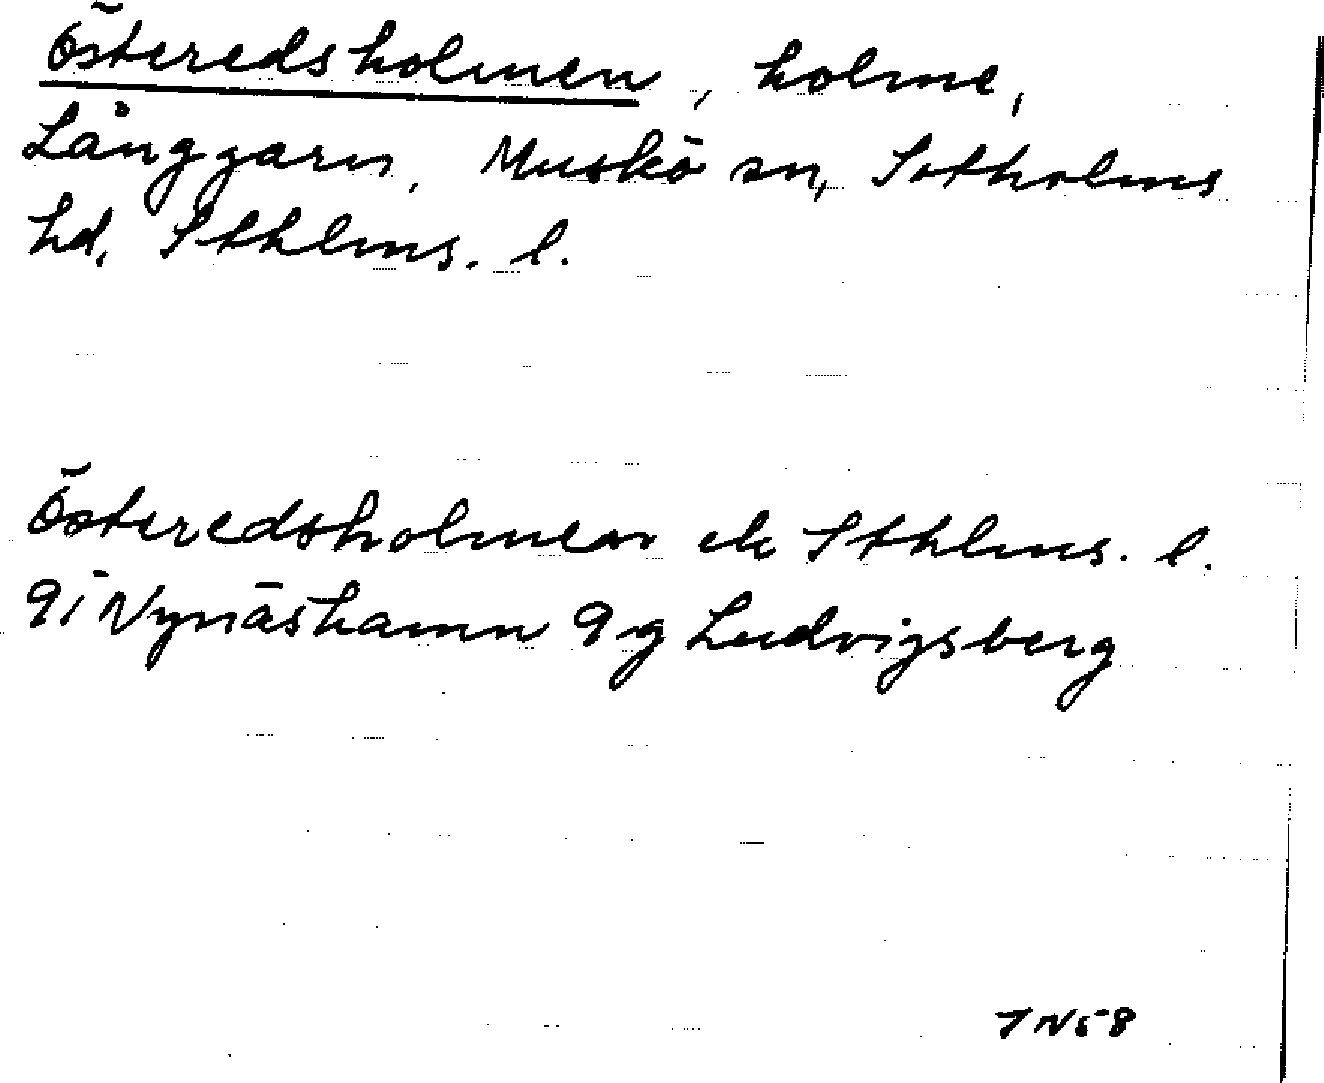 Österedsholmen, holme,
Långgarn, Muskö sn, Sotholms
hd, Sthlms. l.
Österedsholmen ek Sthlms. l.
9i Nynäshamn 9g Ludvigsberg
TN58